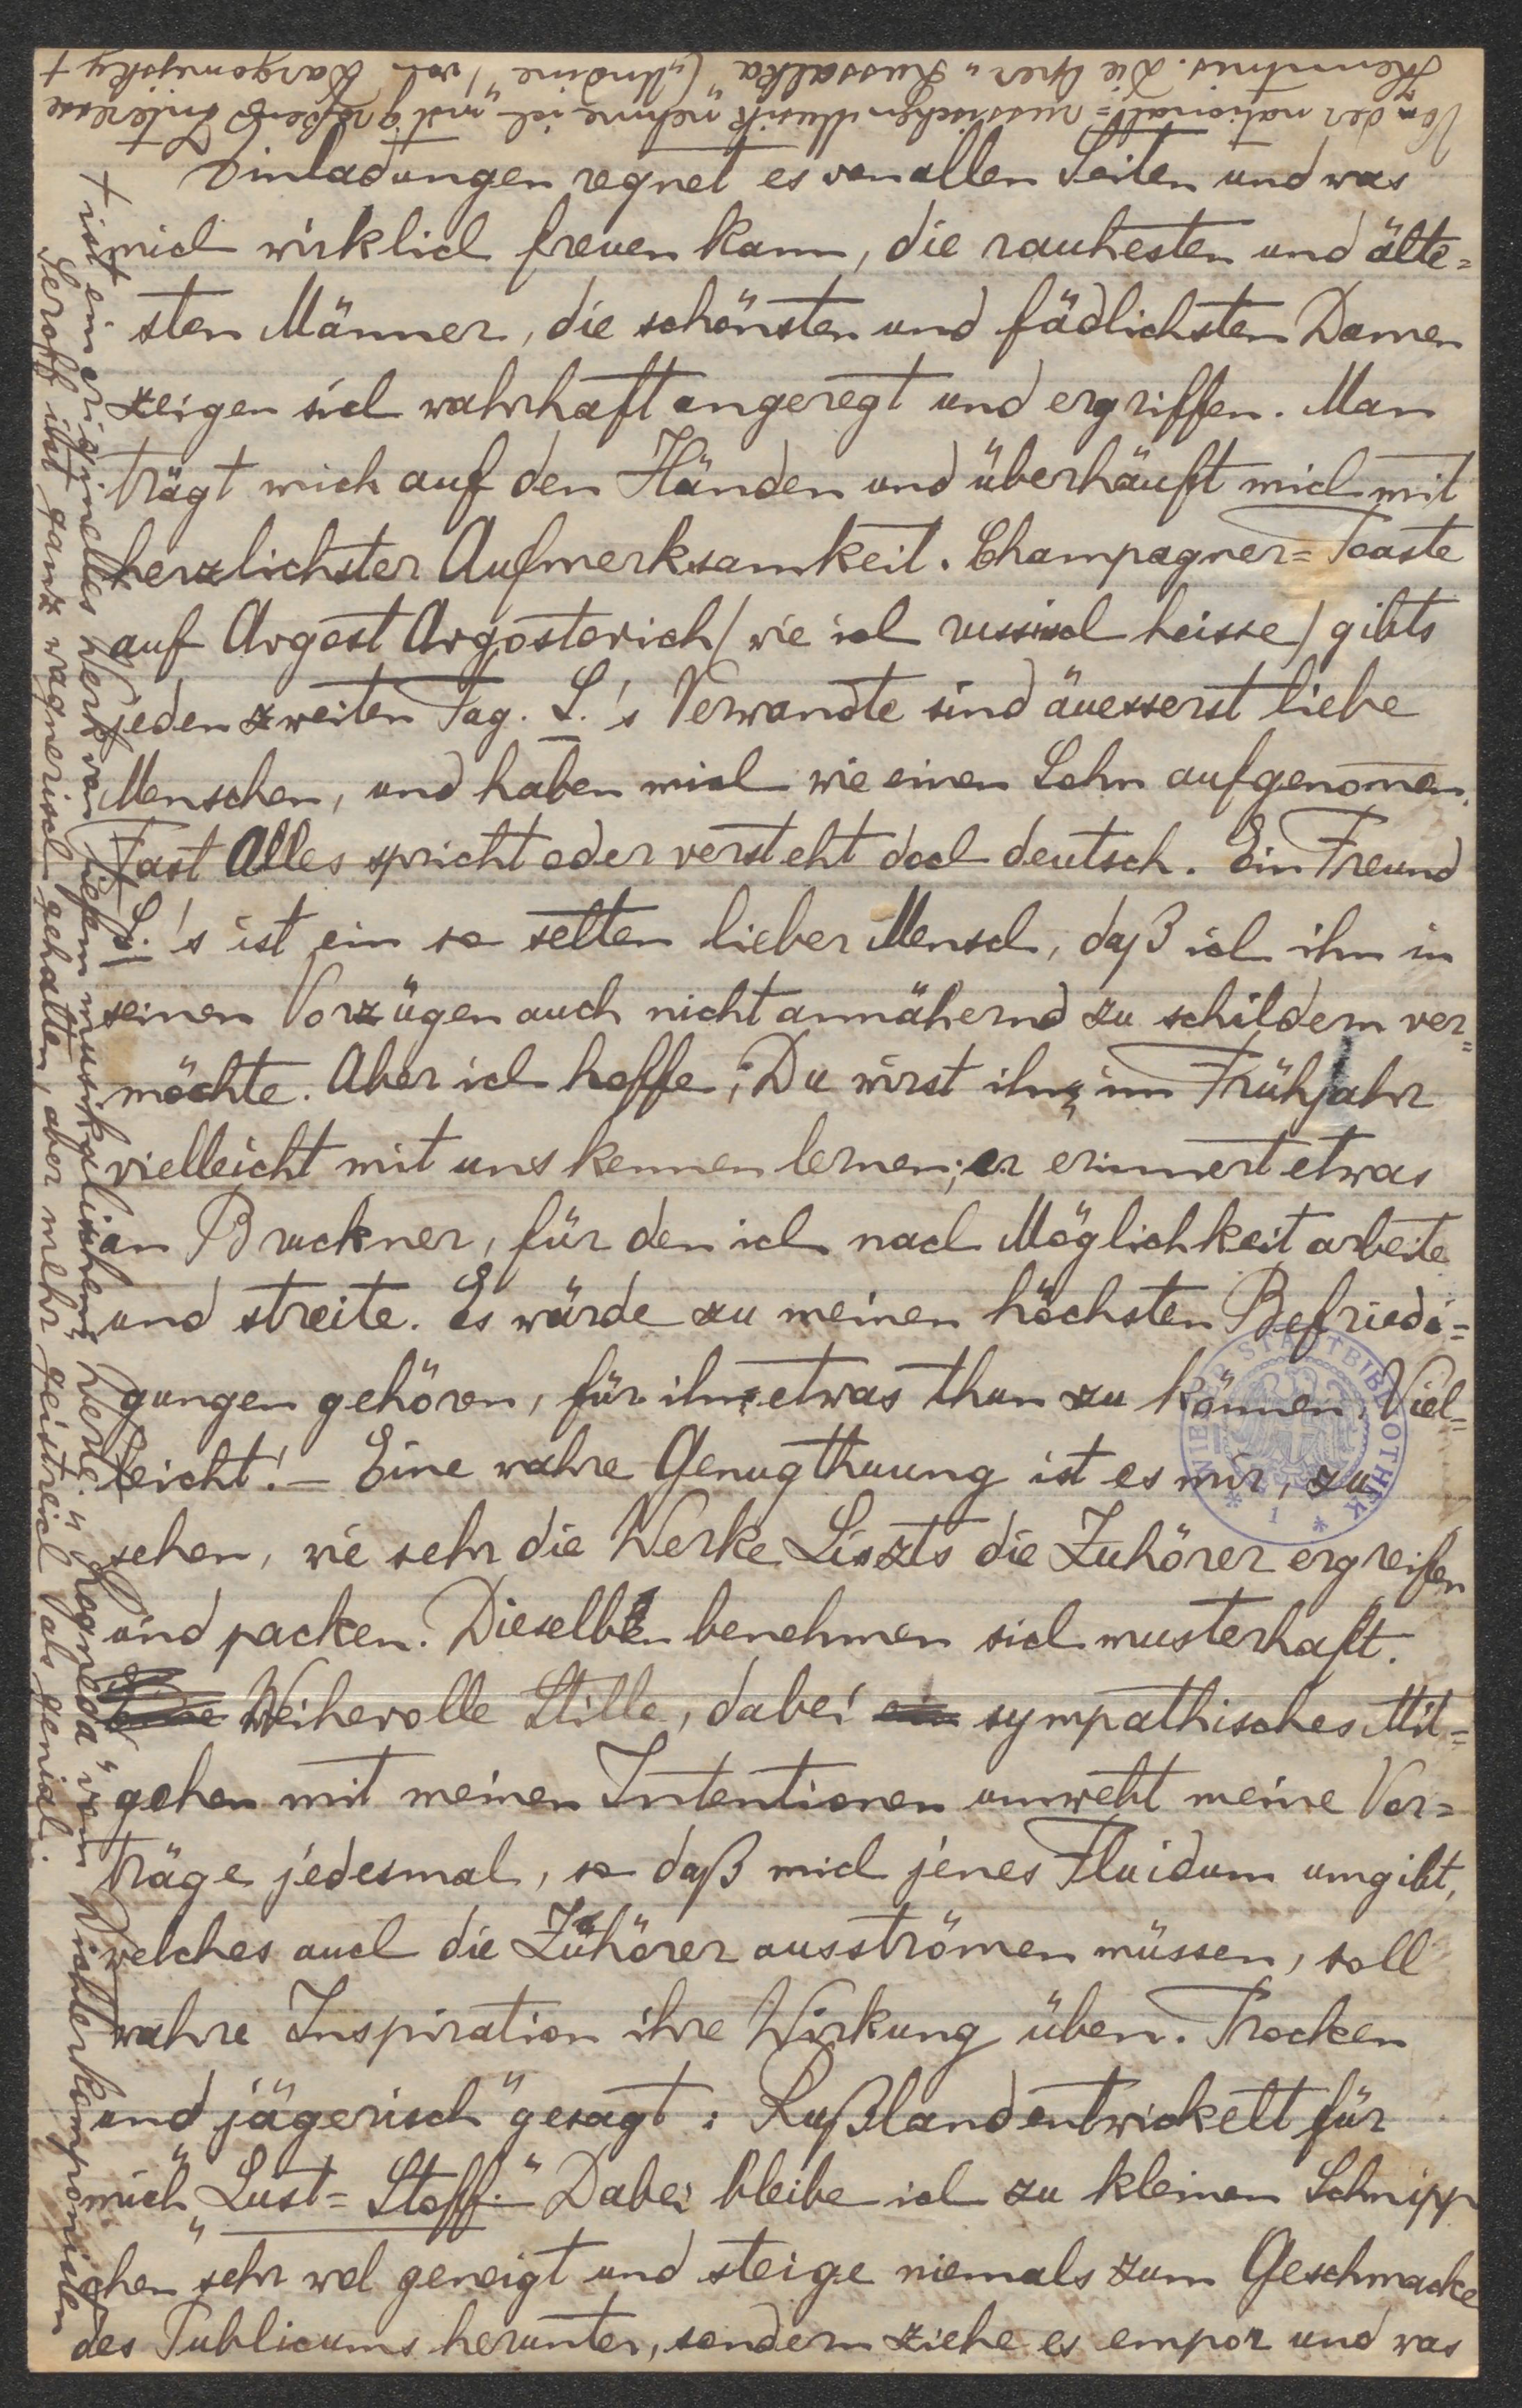 Einladungen regnet es von allen Seiten und was
mich wirklich freuen kann, die rauhesten und älte=
sten Männer, die schönsten und fädlichsten Damen
zeigen sich wahrhaft angeregt und ergriffen. Man
trägt mich auf den Händen und überhäuft mich mit
herzlichster Aufmerksamkeit. Champagner=Toaste
auf Argost Argostovich / wie ich russisch heisse / gibts
jeden zweiten Tag. L.'s Verwandte sind äuesserst liebe
Menschen, und haben mich wie einen Sohn aufgenomen.
Fast Alles spricht oder versteht doch deutsch. Ein Freund
L.'s ist ein so selten lieber Mensch, daß ich ihn in
seinen Vorzügen auch nicht annähernd zu schildern ver=
möchte. Aber ich hoffe, Du wirst ihn im Frühjahr
vielleicht mit uns kennen lernen; er erinnert etwas
an Bruckner, für den ich nach Möglichkeit arbeite
und streite. Es würde zu meinen höchsten Befriedi=
gungen gehören, für ihn etwas thun zu können. Viel=
leicht! – Eine wahre Genugthuung ist es mir, zu
sehen, wie sehr die Werke Liszts die Zuhörer ergreifen
und packen. Dieselben benehmen sich musterhaft.
Weihevolle Stille, dabei sympathisches Mit=
gehen mit meinen Intentionen umweht meine Vor=
träge jedesmal, so daß mich jenes Fluidum umgibt,
welches auch die Zuhörer ausströmen müssen, soll
wahre Inspiration ihre Wirkung üben. Trocken
und "jägerisch" gesagt: Rußland entwickelt für
mich "Lust=Stoff." Dabei bleibe ich zu kleinen "Schnipp
chen" sehr wol geneigt und steige niemals zum Geschmacke
des Publicums herunter, sondern ziehe es empor und was
Von der national=russischen Musik nehme ich mit großem Interesse
Kenntnis. Die Oper "Russalka" ("Undine") von Dargomijsky +
+ ist ein originelles Werk von tiefem musikalischem Werte. "Rogneda" vom Dichterkomponisten
Seroff ist ganz wagnerisch gehalten, aber mehr geistreich als genial.
WIENER STADTBIBLIOTHEK